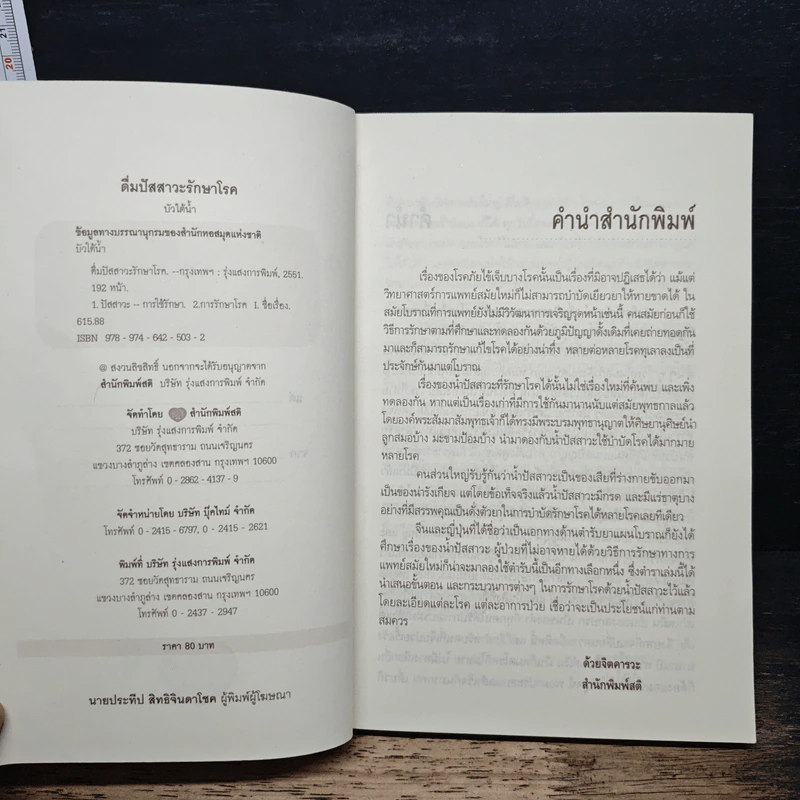 21
20
ดื่มปัสสาวะรักษาโรค
บัวใต้น้ำ
ข้อมูลทางบรรณานุกรมของสำนักหอสมุดแห่งชาติ
บัวใต้น้ำ
ดื่มปัสสาวะรักษาโรค. --กรุงเทพฯ : รุ่งแสงการพิมพ์, 2551.
192 หน้า.
1. ปัสสาวะ -- การใช้รักษา. 2.การรักษาโรค I. ชื่อเรื่อง.
615.88
ISBN 978 - 974 - 642 - 503 - 2
@ สงวนลิขสิทธิ์ นอกจากจะได้รับอนุญาตจาก
สำนักพิมพ์สติ บริษัท รุ่งแสงการพิมพ์ จำกัด
จัดทำโดย สำนักพิมพ์สติ
บริษัท รุ่งแสงการพิมพ์ จำกัด
372 ซอยวัดสุทธาราม ถนนเจริญนคร
แขวงบางลำภูล่าง เขตคลองสาน กรุงเทพฯ 10600
โทรศัพท์ 0 - 2862 - 4137 - 9
จัดจำหน่ายโดย บริษัท บุ๊คไทม์ จำกัด
โทรศัพท์ 0 - 2415 - 6797, 0 - 2415 - 2621
พิมพ์ที่ บริษัท รุ่งแสงการพิมพ์ จำกัด
372 ซอยวัดสุทธาราม ถนนเจริญนคร
แขวงบางลำภูล่าง เขตคลองสาน กรุงเทพฯ 10600
โทรศัพท์ 0 - 2437 - 2947
ราคา 80 บาท
นายประทีป สิทธิจินดาโชค ผู้พิมพ์ผู้โฆษณา
คำนำสำนักพิมพ์
เรื่องของโรคภัยไข้เจ็บบางโรคนั้นเป็นเรื่องที่มิอาจปฏิเสธได้ว่า แม้แต่
วิทยาศาสตร์การแพทย์สมัยใหม่ก็ไม่สามารถบำบัดเยียวยาให้หายขาดได้ ใน
สมัยโบราณที่การแพทย์ยังไม่มีวิวัฒนาการเจริญรุดหน้าเช่นนี้ คนสมัยก่อนก็ใช้
วิธีการรักษาตามที่ศึกษาและทดลองกันด้วยภูมิปัญญาดั้งเดิมที่เคยถ่ายทอดกัน
มาและก็สามารถรักษาแก้ไขโรคได้อย่างน่าทึ่ง หลายต่อหลายโรคทุเลาลงเป็นที่
ประจักษ์กันมาแต่โบราณ
เรื่องของน้ำปัสสาวะที่รักษาโรคได้นั้นไม่ใช่เรื่องใหม่ที่ค้นพบ และเพิ่ง
ทดลองกัน หากแต่เป็นเรื่องเก่าที่มีการใช้กันมานานนับแต่สมัยพุทธกาลแล้ว
โดยองค์พระสัมมาสัมพุทธเจ้าก็ได้ทรงมีพระบรมพุทธานุญาตให้ศิษยานุศิษย์นำ
ลูกสมอบ้าง มะขามป้อมบ้าง นำมาดองกับน้ำปัสสาวะใช้บำบัดโรคได้มากมาย
หลายโรค
คนส่วนใหญ่รับรู้กันว่าน้ำปัสสาวะเป็นของเสียที่ร่างกายขับออกมา
เป็นของน่ารังเกียจ แต่โดยข้อเท็จจริงแล้วน้ำปัสสาวะมีกรด และมีแร่ธาตุบาง
อย่างที่มีสรรพคุณเป็นดั่งตัวยาในการบำบัดรักษาโรคได้หลายโรคเลยทีเดียว
จีนและญี่ปุ่นที่ได้ชื่อว่าเป็นเอกทางด้านตำรับยาแผนโบราณก็ยังได้
ศึกษาเรื่องของน้ำปัสสาวะ ผู้ป่วยที่ไม่อาจหายได้ด้วยวิธีการรักษาทางการ
แพทย์สมัยใหม่ก็น่าจะมาลองใช้ตำรับนี้เป็นอีกทางเลือกหนึ่ง ซึ่งตำราเล่มนี้ได้
นำเสนอขั้นตอน และกระบวนการต่างๆ ในการรักษาโรคด้วยน้ำปัสสาวะไว้แล้ว
โดยละเอียดแต่ละโรค แต่ละอาการป่วย เชื่อว่าจะเป็นประโยชน์แก่ท่านตาม
สมควร
ด้วยจิตคารวะ
สำนักพิมพ์สติ